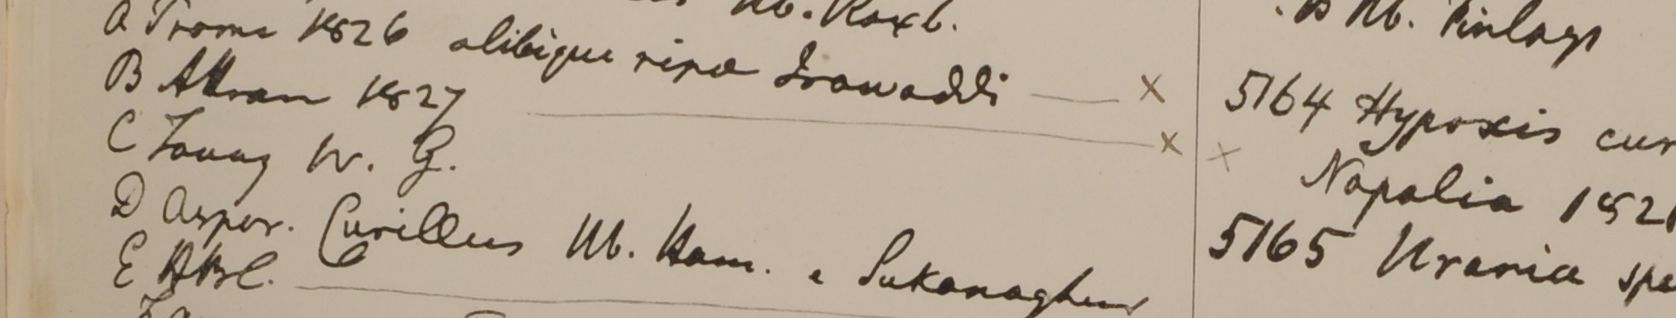 Hb. Roxb.
A Prome 1826 alibique ripa Irawaddi — x
B Attran 1827 — x
C Tavoy W. G.
D Crillus Hb. Ham. e Sukanaghur
E HBC.
B Hb. Finlays
5164 Hypoxis cur
x Napalia 182
5165 Urania spe